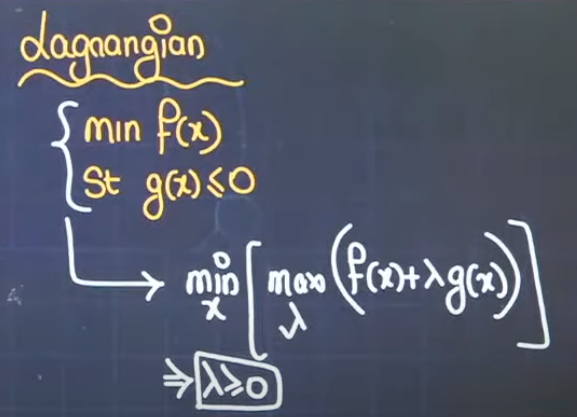 Lagrangian
min f(x)
St g(x) ≤ 0
min x [ max λ ( f(x) + λ g(x) ) ]
⇒ λ ≥ 0